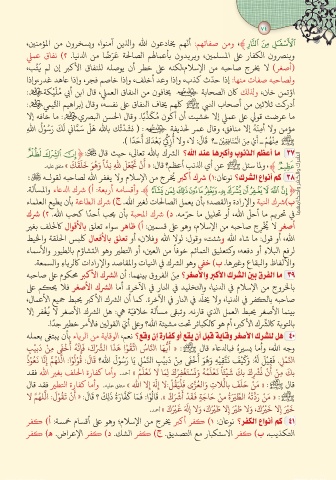 ٧١
الأَسْفَلِ مِنَ النَّارِ﴾، ومن صفاتهم: أنهم يخادعون الله والذين آمنوا، ويسخرون من المؤمنين،
وينصرون الكفار على المسلمين، ويريدون بأعمالهم الصالحة عَرَضًا من الدنيا. ٢) نفاق عملي
(أصغر) لا يخرج صاحبه من الإسلام، لكنه على خطر أن يوصله للنفاق الأكبر إن لم يتب،
ولصاحبه صفات منها: إذا حدَّث كذب، وإذا وعد أخلف، وإذا خاصم فجر، وإذا عاهد غدر، وإذا
اؤتمن خان، ولذلك كان الصحابة يخافون من النفاق العملي، قال ابن أبي مُلَيْكة:
أدركت ثلاثين من أصحاب النبي ﷺ كلهم يخاف النفاق على نفسه، وقال إبراهيم التيمي:
ما عرضت قولي على عملي إلا خشيت أن أكون مُكَذَّبًا. وقال الحسن البصري: ما خافه إلا
مؤمن ولا أمِنَهُ إلا منافق، وقال عمر لحذيفة: (نَشَدْتُك بِاللهِ هَلْ سَمَّانِي لَكَ رَسُولُ اللهِ
ﷺ مِنْهُمْ ـ أي من المنافقين ـ؟ قَالَ: لا، ولا أُزَكِّي بَعْدَكَ أَحَدًا).
٣٧ ما أعظم الذنوب وأكبرها عند الله؟ الشرك بالله تعالى، حيث قال ﷻ: ﴿إِنَّ الشِّرْكَ لَظُلْمٌ
عَظِيمٌ﴾، ولما سئل ﷺ عن أي الذنب أعظم؟ قال: « أَنْ تَجْعَلَ لِلَّهِ نِدًّا وَهُوَ خَلَقَكَ » متفق عليه.
٣٨ كم أنواع الشرك؟ نوعان: ١) شرك أكبر يخرج من الإسلام ولا يغفر الله لصاحبه لقوله:
﴿إِنَّ اللَّهَ لَا يَغْفِرُ أَنْ يُشْرَكَ بِهِ وَيَغْفِرُ مَا دُونَ ذَلِكَ لِمَنْ يَشَاءُ﴾، وأقسامه أربعة: أ) شرك الدعاء والمسألة.
ب) شرك النية والإرادة والقصد؛ بأن يعمل الصالحات لغير الله. ج) شرك الطاعة بأن يطيع العلماء
في تحريم ما أحل الله، أو تحليل ما حرّمه. د) شرك المحبة بأن يحب أحدًا كحب الله. ٢) شرك
أصغر لا يخرج صاحبه من الإسلام، وهو على قسمين: أ) ظاهر سواء تعلق بالأقوال كالحلف بغير
الله، أو قول: ما شاء الله وشئت، وقول: لولا الله وفلان، أو تعلق بالأفعال كلُبس الحلقة والخيط
لرفع البلاء أو دفعه، وكتعليق التمائم خوفًا من العين، أو التطير وهو التشاؤم بالطيور والأسماء
والألفاظ والبقاع وغيرها. ب) خفي وهو الشرك في النيات والمقاصد والإرادات كالرياء والسمعة.
٣٩ ما الفرق بين الشرك الأكبر والأصغر؟ مِن الفروق بينهما: أن الشرك الأكبر محكوم على صاحبه
بالخروج من الإسلام في الدنيا، والتخليد في النار في الآخرة. أما الشرك الأصغر فلا يحكم على
صاحبه بالكفر في الدنيا، ولا يخلَّد في النار في الآخرة. كما أن الشرك الأكبر يحبط جميع الأعمال،
بينما الأصغر يحبط العمل الذي قارنه. وتبقى مسألة خلافية هي: هل الشرك الأصغر لا يُغفر إلا
بالتوبة كالشرك الأكبر، أم هو كالكبائر تحت مشيئة الله؟ وعلى أيّ القولين فالأمر خطير جدًا.
٤٠ هل للشرك الأصغر وقاية قبل أن يقع أو كفارة إن وقع؟ نعم، الوقاية من الرياء بأن يبتغي بعمله
وجه الله، وأما يسيره فبالدعاء قال ﷺ: « أَيُّهَا النَّاسُ اتَّقُوا هَذَا الشِّرْكَ، فَإِنَّهُ أَخْفَى مِنْ دَبِيبِ
النَّمْلِ، فَقِيلَ لَهُ: وَكَيْفَ نَتَّقِيهِ وَهُوَ أَخْفَى مِنْ دَبِيبِ النَّمْلِ يَا رَسُولَ اللهِ؟ قَالَ: قُولُوا: اللَّهُمَّ إِنَّا نَعُوذُ
بِكَ مِنْ أَنْ نُشْرِكَ بِكَ شَيْئًا نَعْلَمُهُ وَنَسْتَغْفِرُكَ لِمَا لَا نَعْلَمُهُ » أحمد. وأما كفارة الحلف بغير الله فقد
قال ﷺ: « مَنْ حَلَفَ بِاللَّاتِ وَالْعُزَّى فَلْيَقُلْ: لَا إِلَهَ إِلَّا اللهُ » متفق عليه. وأما كفارة التطير فقد قال
ﷺ: « مَنْ رَدَّتْهُ الطِّيَرَةُ مِنْ حَاجَةٍ فَقَدْ أَشْرَكَ »، قَالُوا: فَمَا كَفَّارَةُ ذَلِكَ؟ قَالَ: « أَنْ تَقُولَ: اللَّهُمَّ لَا
خَيْرَ إِلَّا خَيْرُكَ، وَلَا طَيْرَ إِلَّا طَيْرُكَ، وَلَا إِلَهَ غَيْرُكَ » أحمد.
٤١ كم أنواع الكفر؟ نوعان: ١) كفر أكبر يخرج من الإسلام؛ وهو على أقسام خمسة: أ) كفر
التكذيب. ب) كفر الاستكبار مع التصديق. ج) كفر الشك. د) كفر الإعراض. هـ) كفر